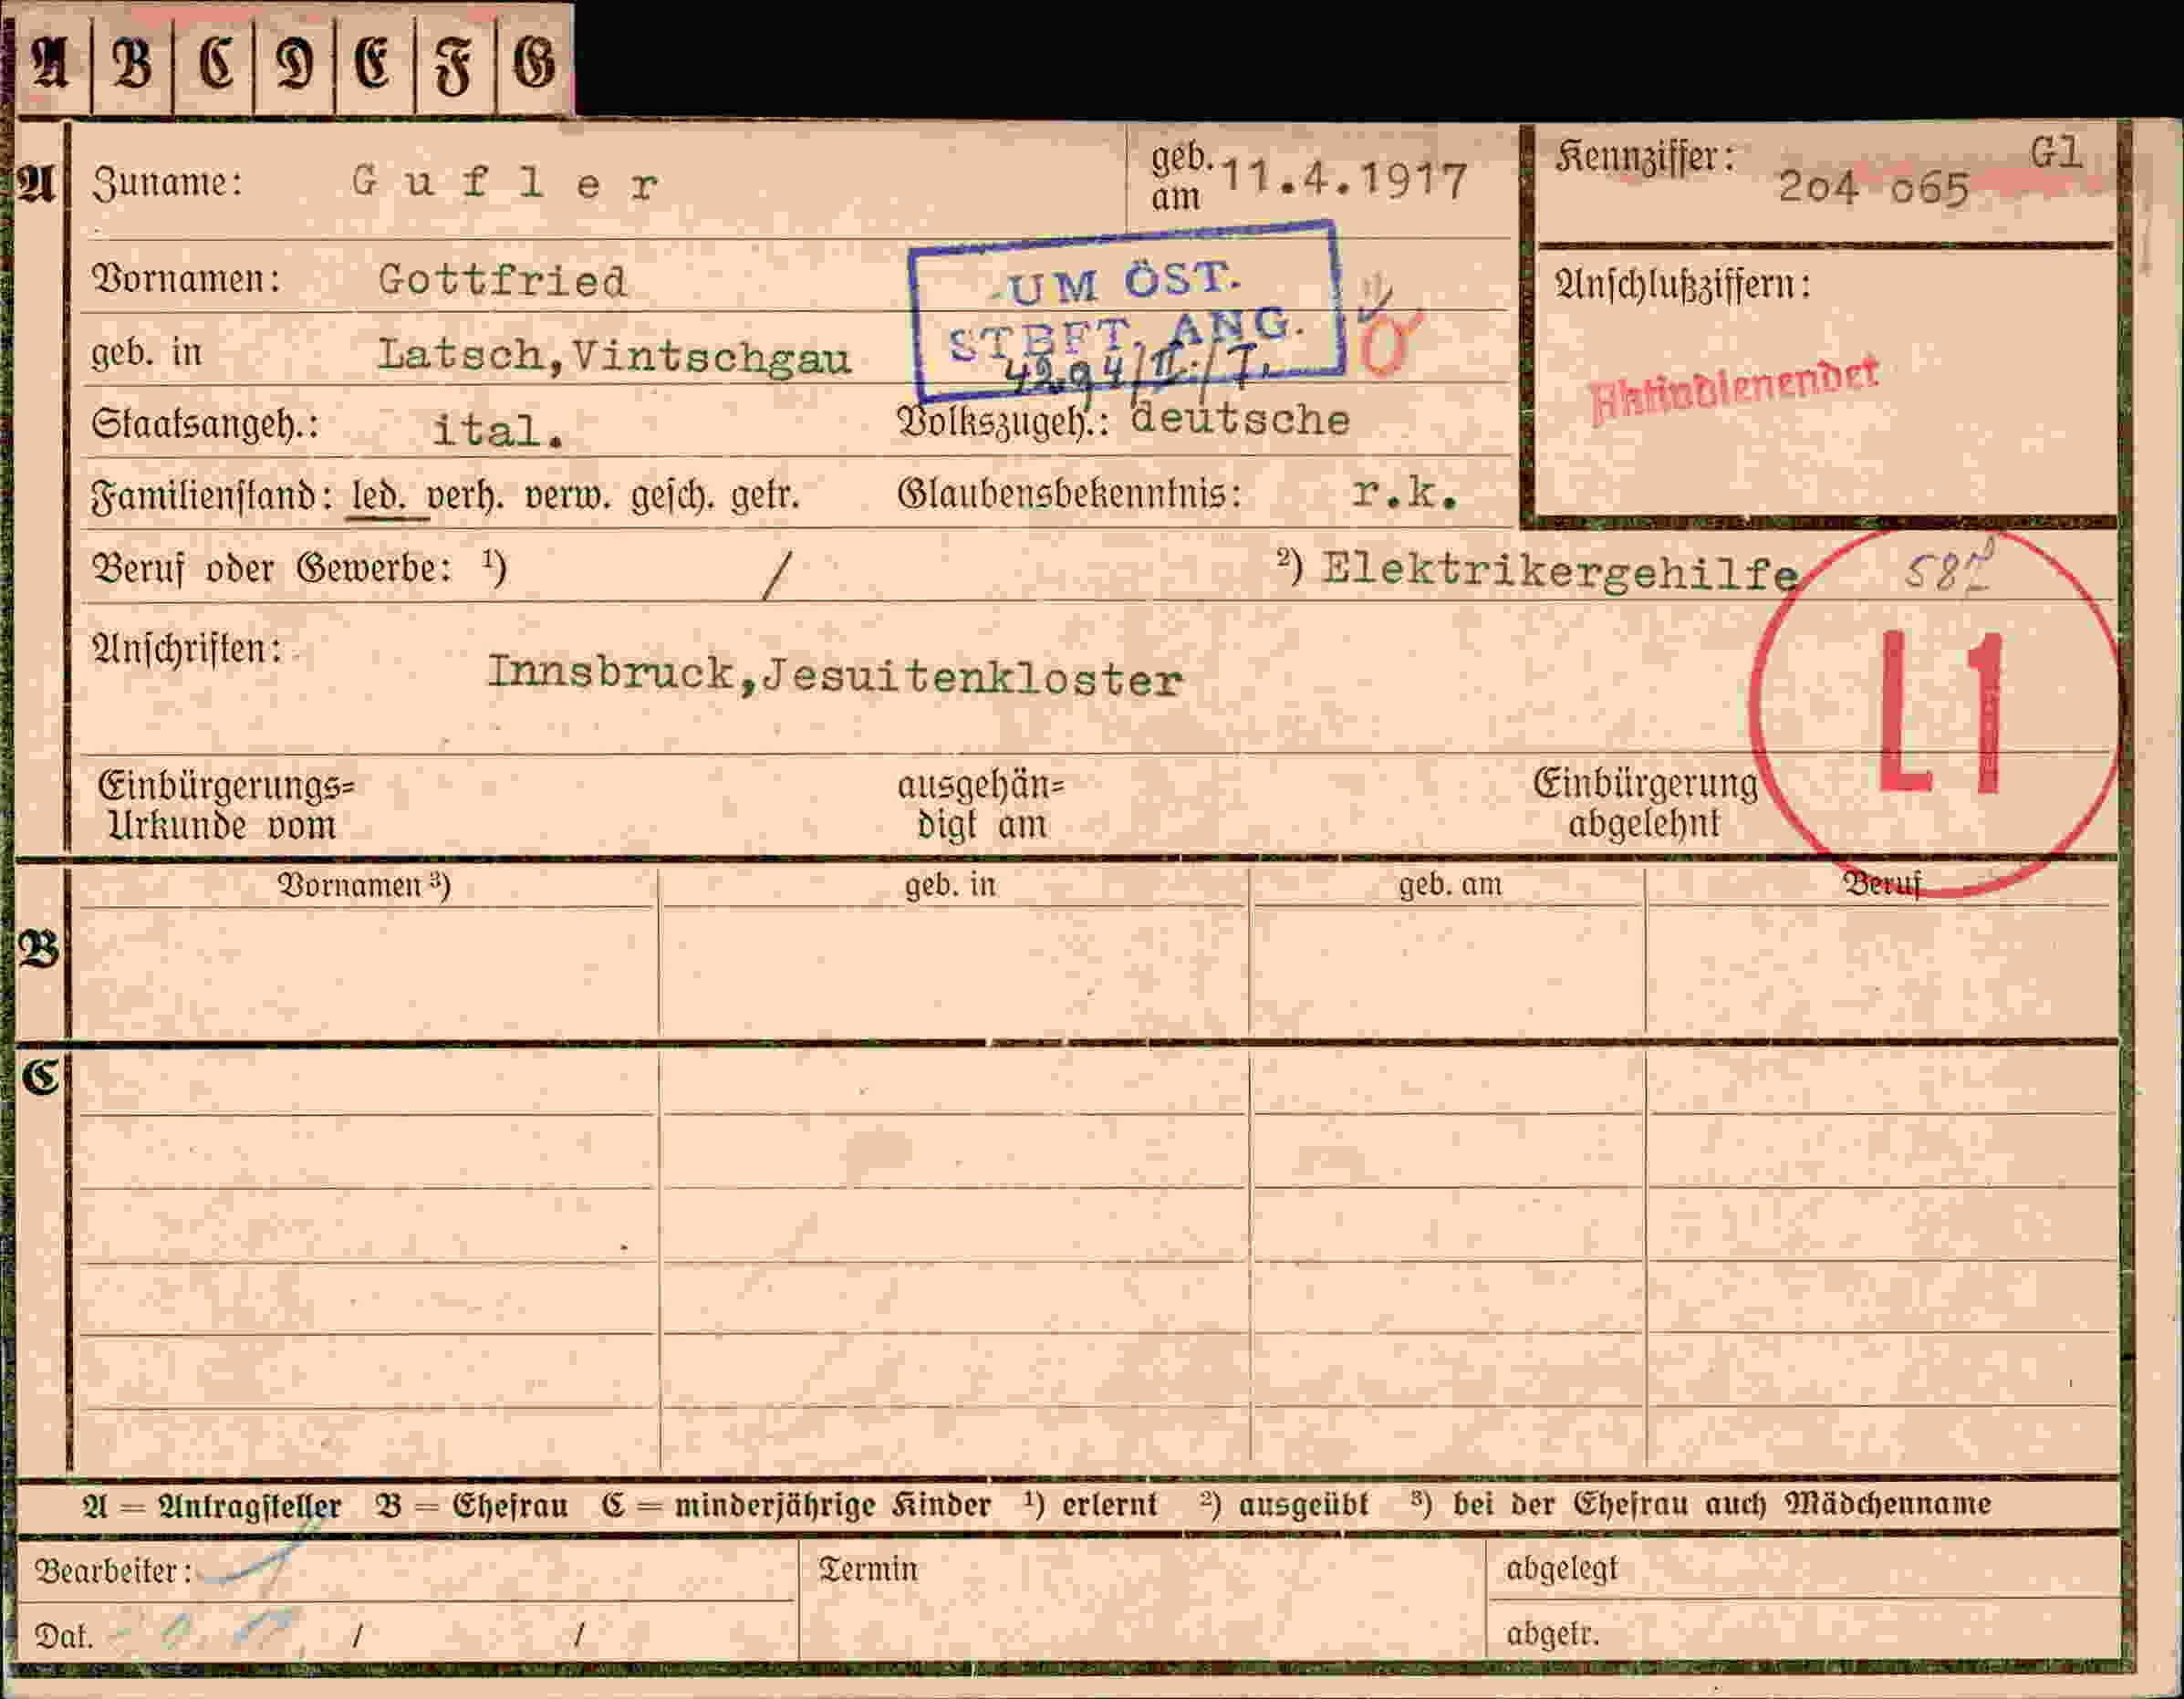 A B C D E F G
A Zuname: Gufler geb. am 11.4.1917 Kennziffer: 204 065 Gl
Vornamen: Gottfried
UM ÖST.
STBFT. ANG.
Anschlußziffern:
geb. in Latsch,Vintschgau
Staatsangeh.: ital. Volkszugeh.: deutsche
Familienstand: led. verh. verw. gesch. getr. Glaubensbekenntnis: r.k.
Beruf oder Gewerbe: ¹) / ²) Elektrikergehilfe
L1
Anschriften: Innsbruck,Jesuitenkloster
Einbürgerungs=
Urkunde vom
ausgehän=
digt am
Einbürgerung
abgelehnt
B Vornamen ³) geb. in geb. am Beruf
C
A = Antragsteller B = Ehefrau C = minderjährige Kinder ¹) erlernt ²) ausgeübt ³) bei der Ehefrau auch Mädchenname
Bearbeiter: Termin abgelegt
Dat. / / abgetr.